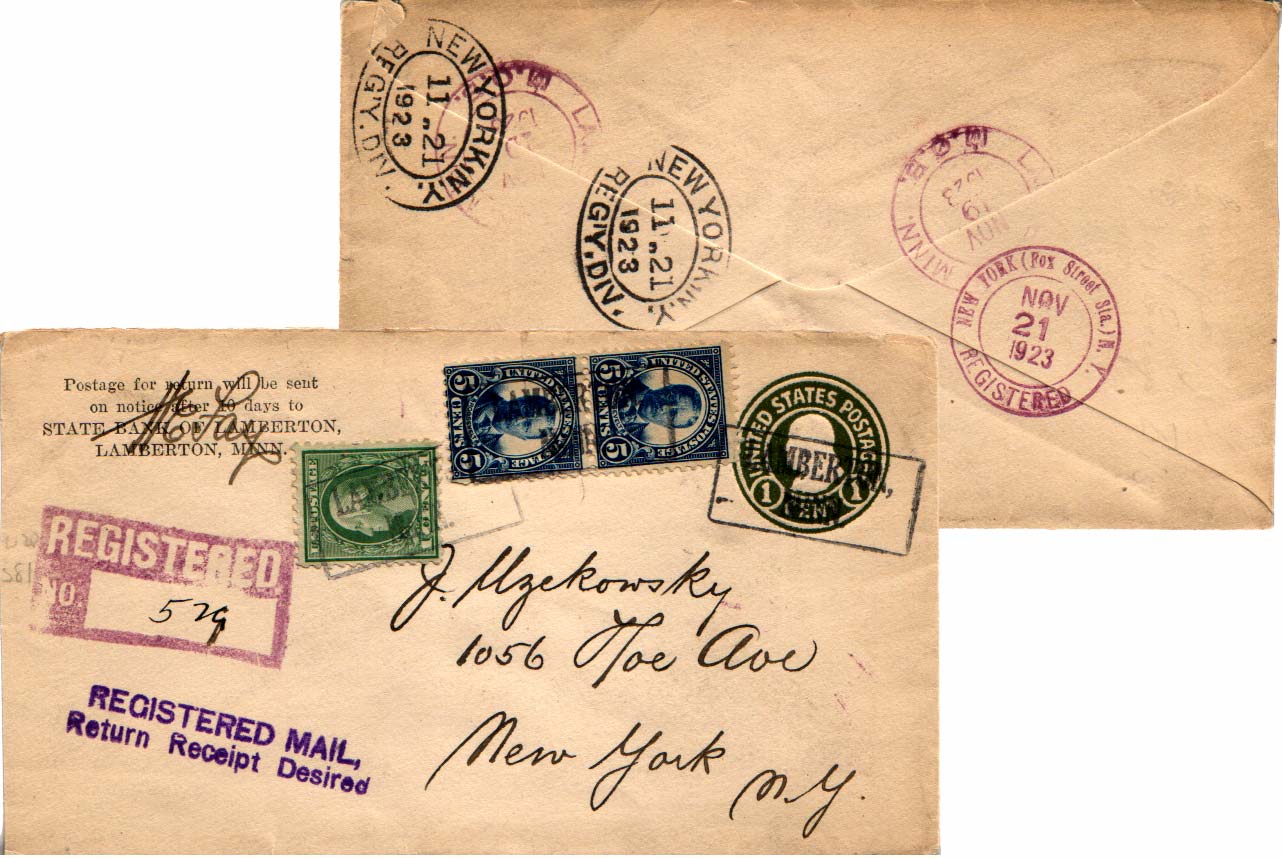 NEW YORK, N.Y.
11 21
1923
REG'Y. DIV.
M.O.B.
NEW YORK, N.Y.
11 21
1923
REG'Y. DIV.
M.O.B.
NOV
19
1923
MINN.
NEW YORK (Fox Street Sta.) N.Y.
NOV
21
1923
REGISTERED
Postage for return will be sent
on notice after 10 days to
STATE BANK OF LAMBERTON,
LAMBERTON, MINN.
UNITED STATES POSTAGE
5 CENTS 5
UNITED STATES POSTAGE
5 CENTS 5
UNITED STATES POSTAGE
1 1
U.S. POSTAGE
1 CENT 1
REGISTERED
NO.
529
J. Uzekowsky
1056 Hoe Ave
New York
N.Y.
REGISTERED MAIL,
Return Receipt Desired